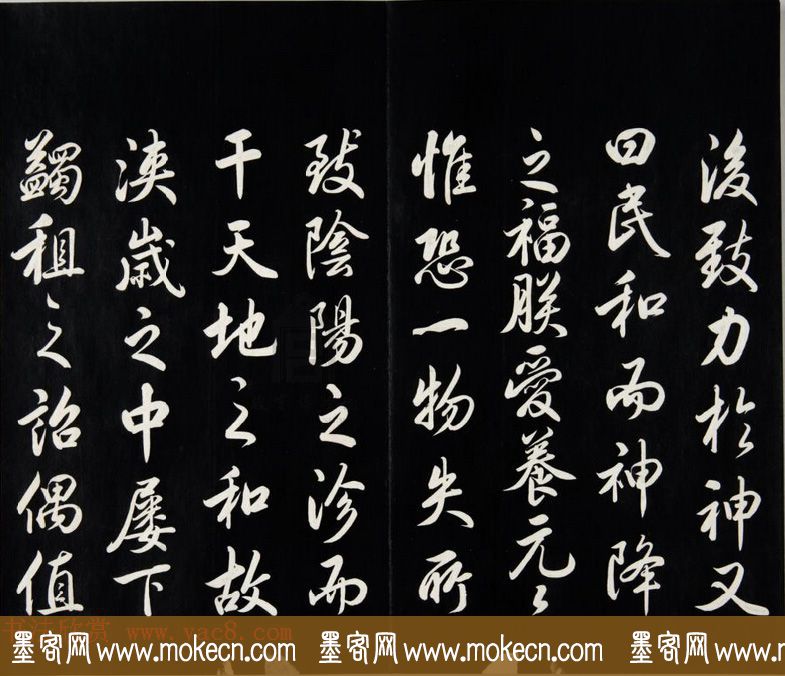 後致力於神又
曰民和而神降
之福朕愛養元〻
惟恐一物失所
致陰陽之沴而
干天地之和故
浹歲之中屢下
蠲租之詔偶值
书法欣赏 www.yac8.com
墨客网 www.mokecn.com 墨客网 www.mokecn.com 墨客网 www.mokecn.com